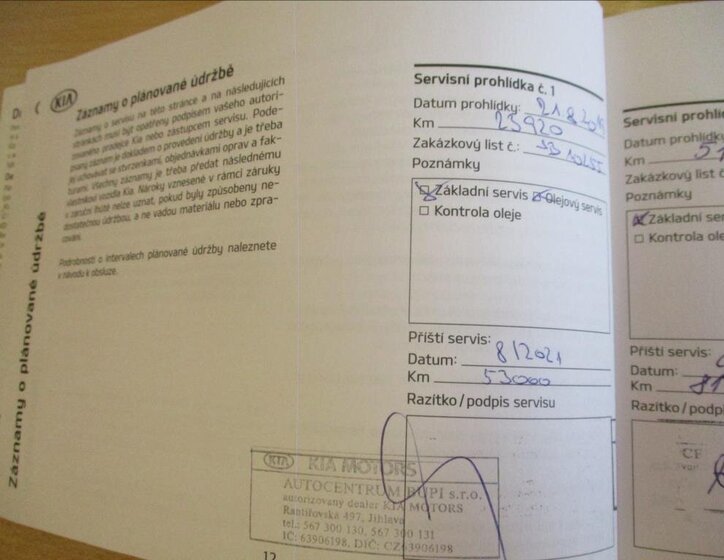 KIA
Záznamy o plánované údržbě
Záznamy o servisu na této stránce a na následujících
stránkách musí být opatřeny podpisem vašeho autori-
zovaného prodejce Kia nebo zástupcem servisu. Pode-
psaný záznam je dokladem o provedení údržby a je třeba
jej uchovávat se stvrzenkami, objednávkami oprav a fak-
turami. Všechny záznamy je třeba předat následnému
vlastníkovi vozidla Kia. Nároky vznesené v rámci záruky
v záruční lhůtě nelze uznat, pokud byly způsobeny ne-
dostatečnou údržbou, a ne vadou materiálu nebo zpra-
cování.
Podrobnosti o intervalech plánované údržby naleznete
v návodu k obsluze.
Záznamy o plánované údržbě
12
Servisní prohlídka č. 1
Datum prohlídky: 21.8.2019
Km 23920
Zakázkový list č.:
Poznámky
Základní servis Olejový servis
Kontrola oleje
Příští servis:
Datum: 8/2021
Km 53000
Razítko/podpis servisu
KIA KIA MOTORS
AUTOCENTRUM RUPI s.r.o.
autorizovaný dealer KIA MOTORS
Rantířovská 497, Jihlava
tel.: 567 300 130, 567 300 131
IČ: 63906198, DIČ: CZ63906198
Servisní prohlí
Datum prohlídky
Km 51
Zakázkový list č
Poznámky
Základní ser
Kontrola ole
Příští servis:
Datum:
Km 81
Razítko/podp